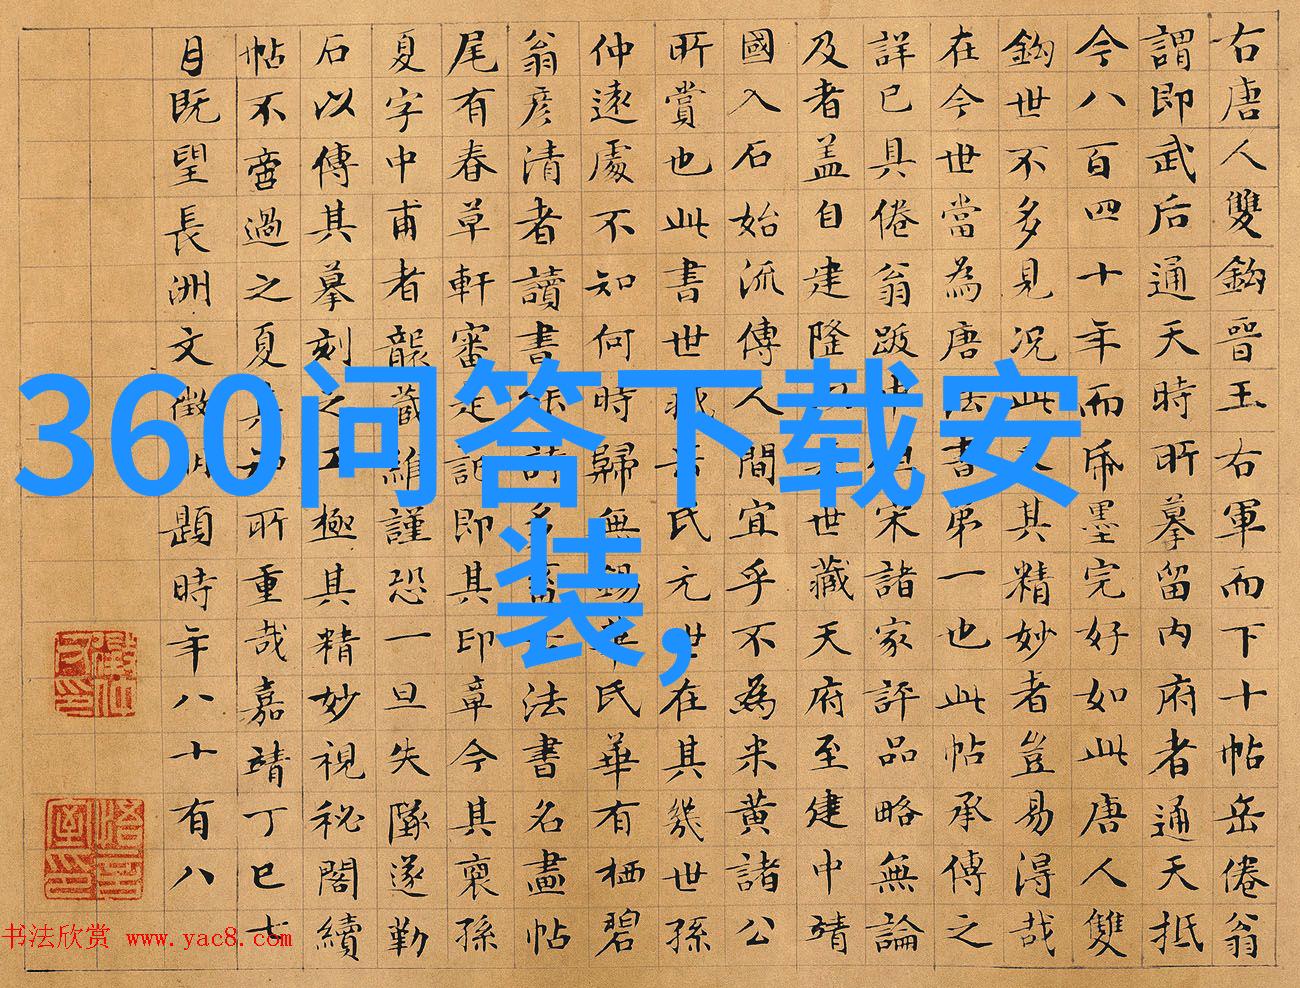 360问答下载安
装,
右唐人雙鈎晉王右軍而下十帖岳倦翁
謂即武后通天時所摹留內府者通天抵
今八百四十年而紙墨完好如此唐人雙
鈎世不多見况此又其精妙者豈易得哉
在今世當為唐法書第一也此帖承傳之
詳已具倦翁跋中但宋諸家評品略無論
及者盖自建隆世藏天府至建中靖
國入石始流傳人間宜乎不為米黃諸公
所賞也此書世藏岳氏元世在其幾世孫
仲遠處不知何時歸無錫華氏華有栖碧
翁彦清者讀書多法書名畫帖
尾有春草軒審定記即其印章今其裔孫
夏字中甫者襲藏維謹恐一旦失墜遂勒
石以傳其摹刻之工極其精妙視秘閣續
帖不啻過之夏其所重哉嘉靖丁巳七
月既望長洲文徵明題時年八十有八
书法欣赏 www.yac8.com